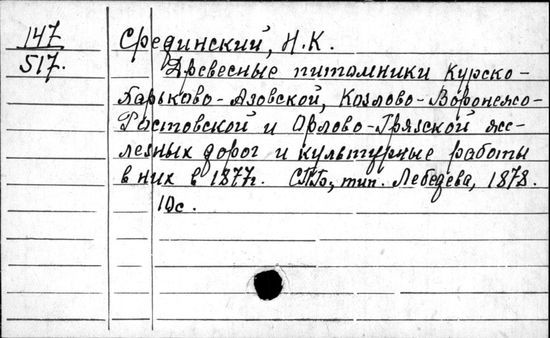 147
517.
Срединский, Н.К.
Древесные питомники Курско-
Харьково-Азовской, Козлово-Воронежо-
Ростовской и Орлово-Грязской же-
лезных дорог и культурные работы
в них в 1877г. СПБ, тип. Лебедева, 1878.
10с.